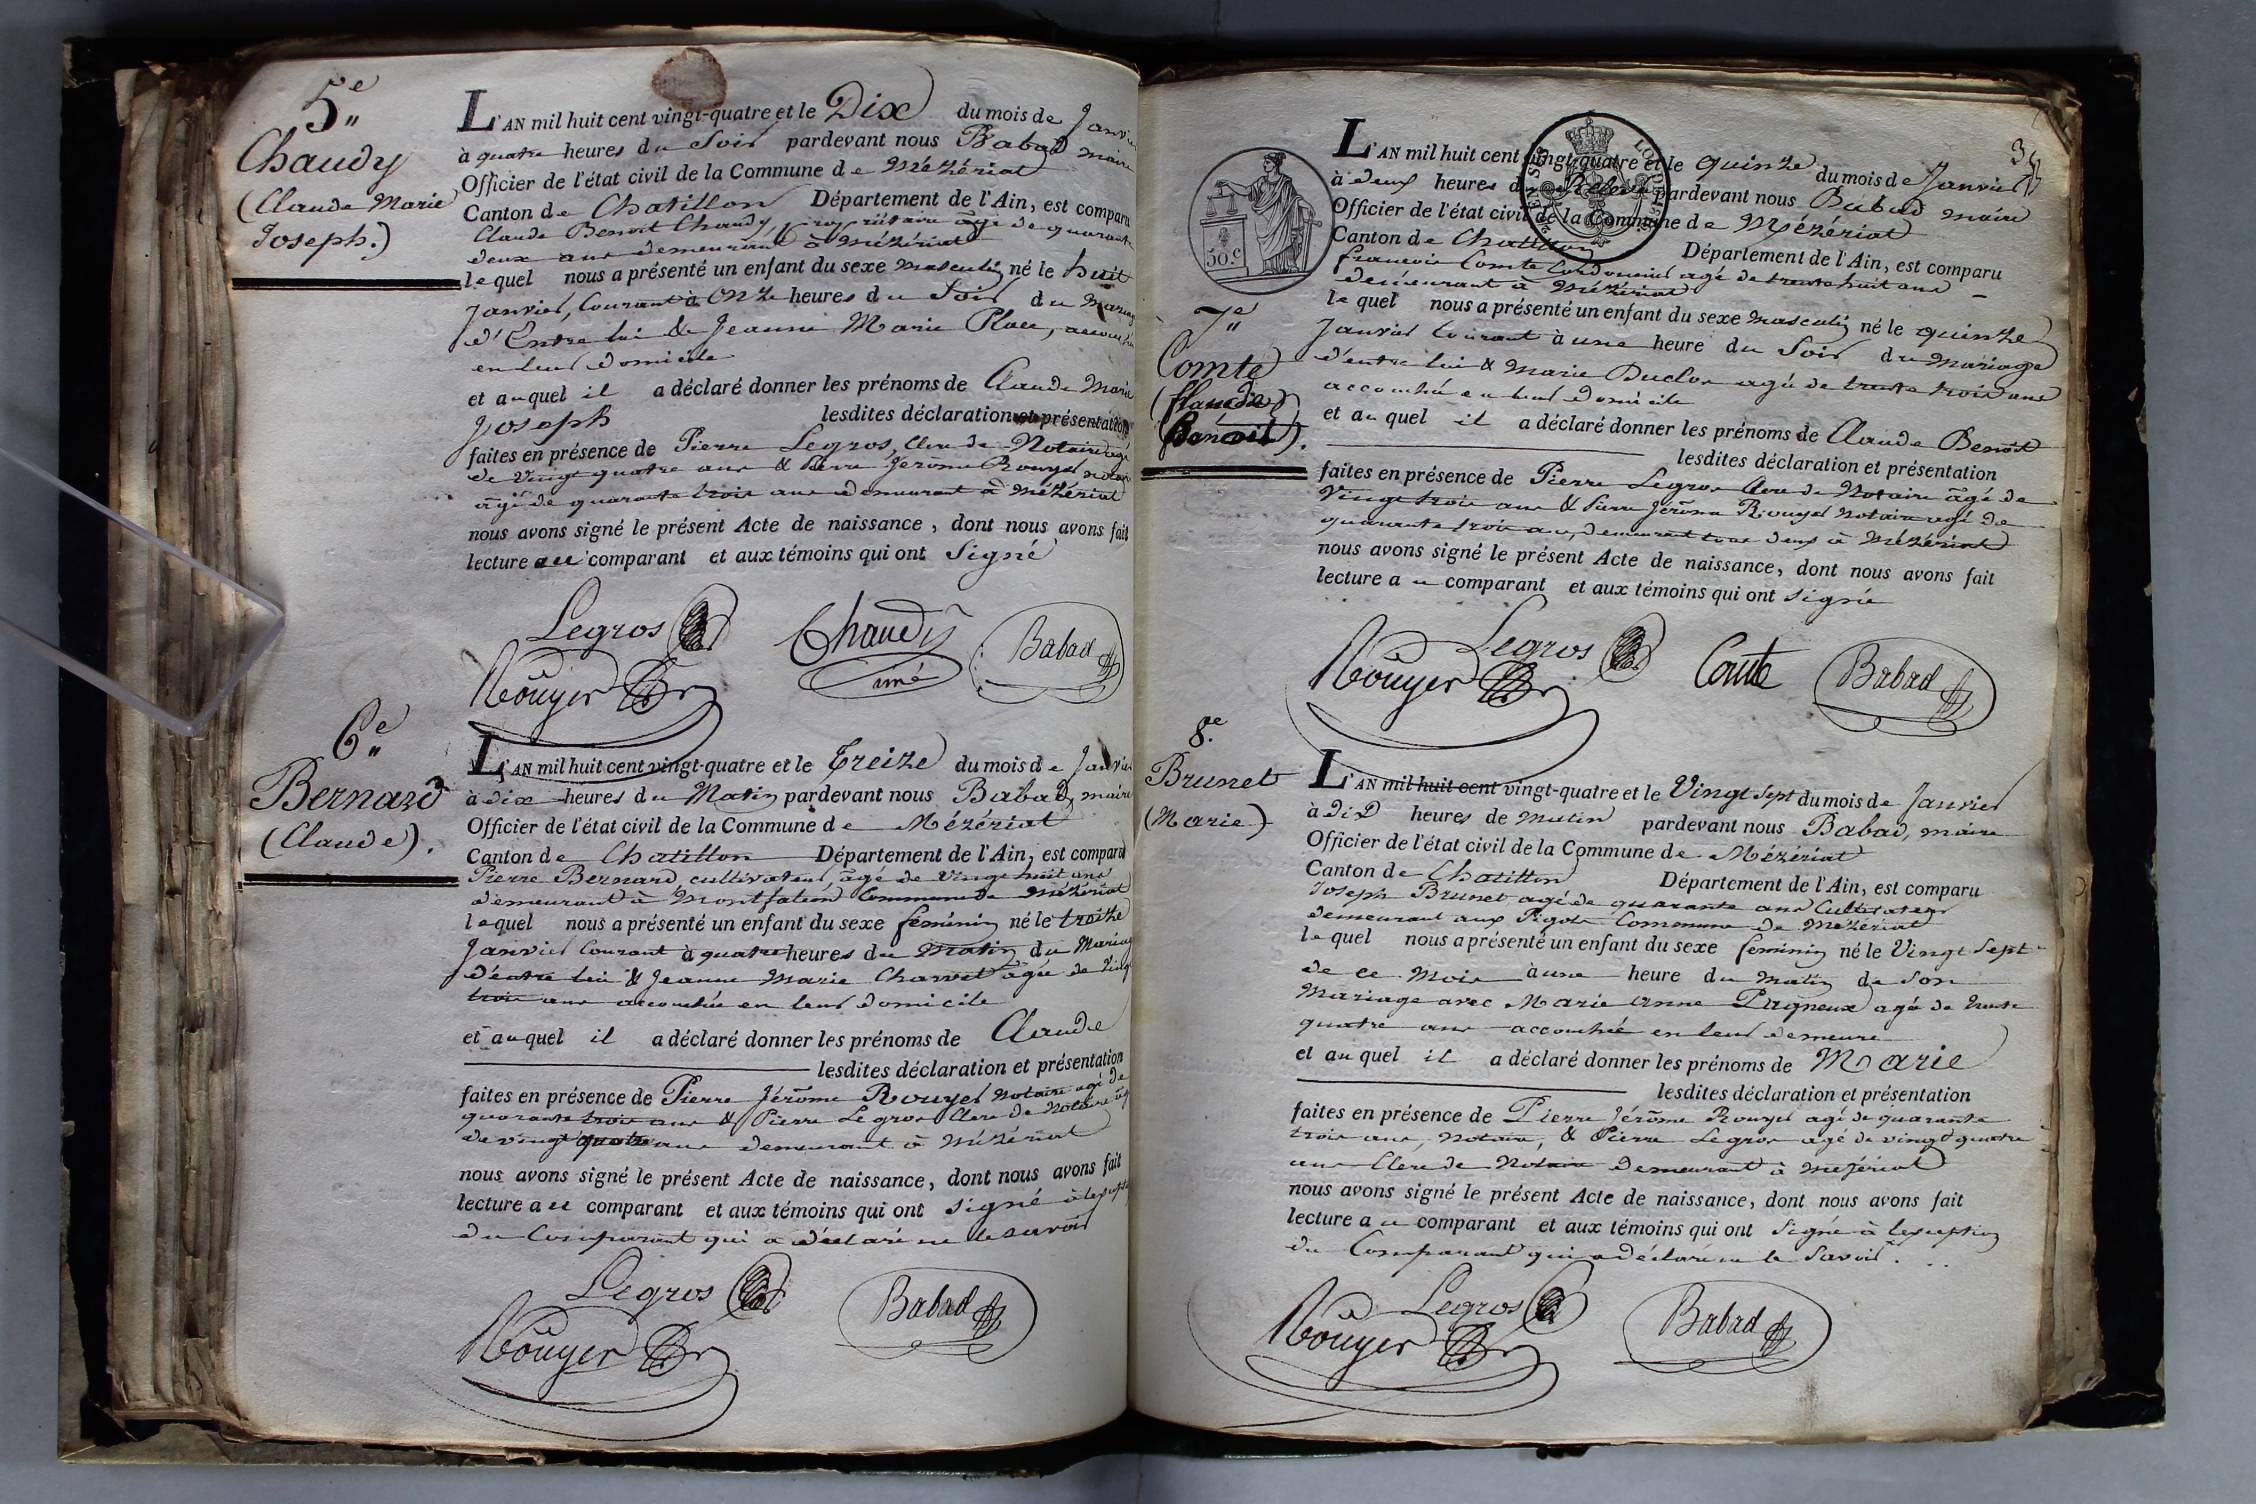 5e
Chaudy
(Claude Marie
Joseph.)
L'AN mil huit cent vingt-quatre et le Dix du mois de Janvier
à quatre heures du Soir pardevant nous Babad maire
Officier de l'état civil de la Commune de Mézériat
Canton de Chatillon Département de l'Ain, est comparu
Claude Benoit Chaudy, propriétaire âgé de quarante
deux ans demeurant à Mézériat
lequel nous a présenté un enfant du sexe masculin né le huit
Janvier, Courant à onze heures du Soir du Mariage
d'Entre lui & Jeanne Marie Place, accouchée
en leur domicile
et auquel il a déclaré donner les prénoms de Claude Marie
Joseph lesdites déclaration et présentation
faites en présence de Pierre Legros, Clerc de Notaire agé
de Vingt quatre ans & Pierre Jerôme Rouyer notaire
âgé de quarante trois ans demeurant à Mézériat
nous avons signé le présent Acte de naissance, dont nous avons fait
lecture au comparant et aux témoins qui ont Signé
Legros Chaudy Babad
Rouyer aîné
6e
Bernard
(Claude).
L'AN mil huit cent vingt-quatre et le Treize du mois de Janvier
à dix heures du Matin pardevant nous Babad, maire
Officier de l'état civil de la Commune de Mézériat
Canton de Chatillon Département de l'Ain, est comparu
Pierre Bernard, cultivateur, âgé de Vingt huit ans
demeurant à Montfalcon Commune de Mézériat
lequel nous a présenté un enfant du sexe féminin né le treize
Janvier Courant à quatre heures du Matin du Mariage
d'entre lui & Jeanne Marie Charvet âgée de Vingt
trois ans accouchée en leur domicile
et auquel il a déclaré donner les prénoms de Claude
lesdites déclaration et présentation
faites en présence de Pierre Jérôme Rouyer Notaire agé de
quarante trois ans & Pierre Legros Clerc de Notaire âgé
de vingt quatre ans demeurant à Mézériat
nous avons signé le présent Acte de naissance, dont nous avons fait
lecture au comparant et aux témoins qui ont signé à lexception
du Comparant qui a déclaré ne le savoir
Legros Babad
Rouyer
50.c
7e
Comte
(Claude
Benoit).
L'AN mil huit cent vingt-quatre et le quinze du mois de Janvier
à deux heures de pardevant nous Babad maire
Officier de l'état civil de la Commune de Mézériat
Canton de Chatillon Département de l'Ain, est comparu
françois Comte Cordonnier agé de trente huit ans
demeurant à Mézériat
lequel nous a présenté un enfant du sexe masculin né le quinze
Janvier Courant à une heure du Soir du Mariage
d'entre lui & Marie Duclos agée de trente trois ans
accouchée en leur domicile
et auquel il a déclaré donner les prénoms de Claude Benoit
lesdites déclaration et présentation
faites en présence de Pierre Legros Clerc de Notaire âgé de
Vingt trois ans & Pierre Jérôme Rouyer Notaire agé de
quarante trois ans, demeurant tous deux à Mézériat
nous avons signé le présent Acte de naissance, dont nous avons fait
lecture au comparant et aux témoins qui ont signé
Legros Comte Babad
Rouyer
8e
Brunet
(Marie)
L'AN mil huit cent vingt-quatre et le Vingt sept du mois de Janvier
à dix heures de matin pardevant nous Babad, maire
Officier de l'état civil de la Commune de Mézériat
Canton de Chatillon Département de l'Ain, est comparu
Joseph Brunet agé de quarante ans Cultivateur
demeurant aux Pigots Commune de Mézériat
lequel nous a présenté un enfant du sexe feminin né le Vingt Sept
de ce Mois à une heure du Matin de Son
Mariage avec Marie Anne Pagneux agée de trente
quatre ans accouchée en leur demeure
et auquel il a déclaré donner les prénoms de Marie
lesdites déclaration et présentation
faites en présence de Pierre Jérôme Rouyer agé de quarante
trois ans, Notaire, & Pierre Legros agé de vingt quatre
ans Clerc de Notaire demeurant à Mézériat
nous avons signé le présent Acte de naissance, dont nous avons fait
lecture au comparant et aux témoins qui ont Signé à lexception
du Comparant qui a déclaré ne le Savoir.
Legros Babad
Rouyer